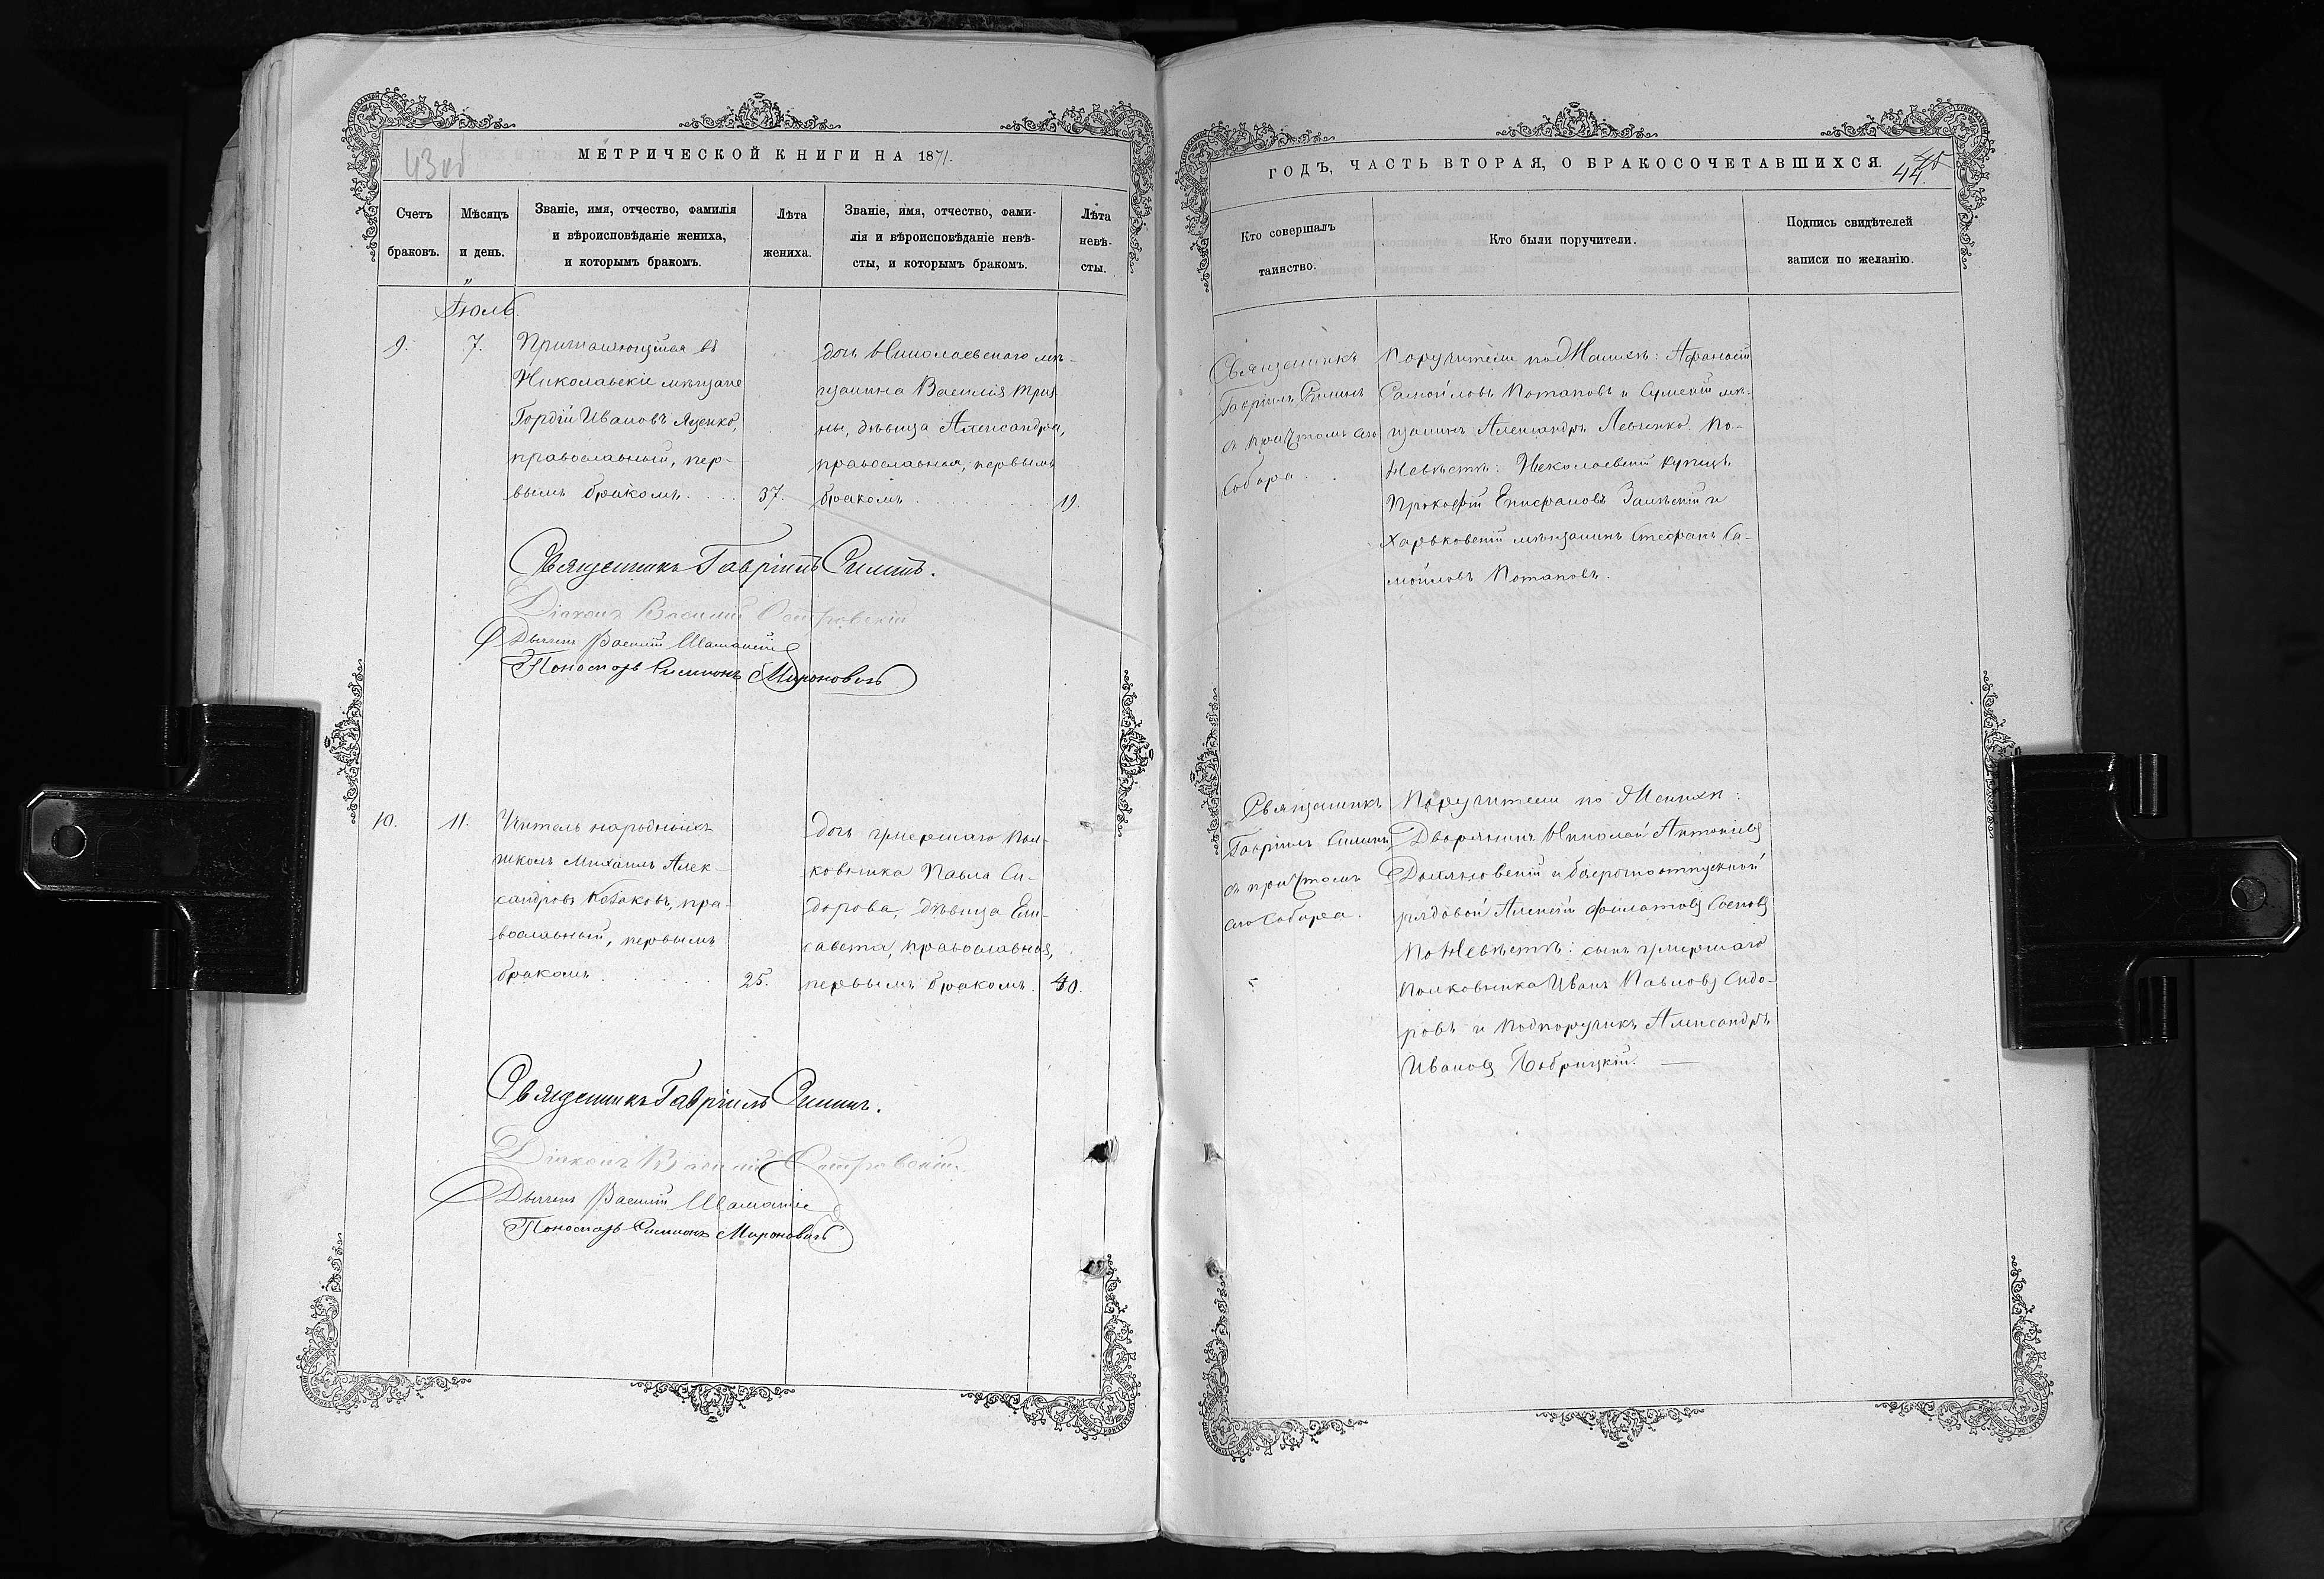 43об
МЕТРИЧЕСКОЙ КНИГИ НА 1871.
Счетъ браковъ.
Мѣсяцъ и день.
Званіе, имя, отчество, фамилія
и вѣроисповѣданіе жениха,
и которымъ бракомъ.
Лѣта жениха.
Званіе, имя, отчество, фами-
лія и вѣроисповѣданіе невѣ-
сты, и которымъ бракомъ.
Лѣта невѣ-
сты.
Іюль.
9. 7.
Николаевскіе мѣщане
Гордій Ивановъ Яценко,
православный, пер-
вымъ бракомъ. 37.
дочь Николаевскаго мѣ-
щанина Василія
ны, дѣвица Александра,
православная, первымъ
бракомъ 19.
Священникъ Гавріилъ
Діаконъ Василій Островскій
Дьячекъ Василій
Пономарь Симеонъ Мироновичъ
10. 11.
Учитель народныхъ
школъ Михаилъ Алек-
сандровъ Козаковъ, пра-
вославный, первымъ
бракомъ 25.
дочь умершаго Пол-
ковника Павла Си-
дорова, дѣвица Ели-
савета, православная,
первымъ бракомъ. 40.
Священникъ Гавріилъ
Діаконъ Василій Островскій.
Дьячекъ Василій
Пономарь Симеонъ Мироновичъ
ГОДЪ, ЧАСТЬ ВТОРАЯ, О БРАКОСОЧЕТАВШИХСЯ.
44.
Кто совершалъ
таинство.
Кто были поручители.
Подпись свидѣтелей
записи по желанію.
Священникъ
Гавріилъ
съ причтомъ сего
Собора.
Поручители по Женихѣ: Афанасій
Самойловъ Потаповъ и Сумскій мѣ-
щанинъ Александръ Левченко. По-
Невѣстѣ: Николаевскій купецъ
Прокофій Епифановъ и
Харьковскій мѣщанинъ Стефанъ Са-
мойловъ Потаповъ.
Священникъ
Гавріилъ
съ причтомъ
сего Собора.
Поручители по Женихѣ:
Дворянинъ Николай Антоніевъ
и безсрочноотпускной
рядовой Алексѣй Филатовъ
По Невѣстѣ: сынъ умершаго
Полковника Иванъ Павловъ Сидо-
ровъ и Подпоручикъ Александръ
Ивановъ